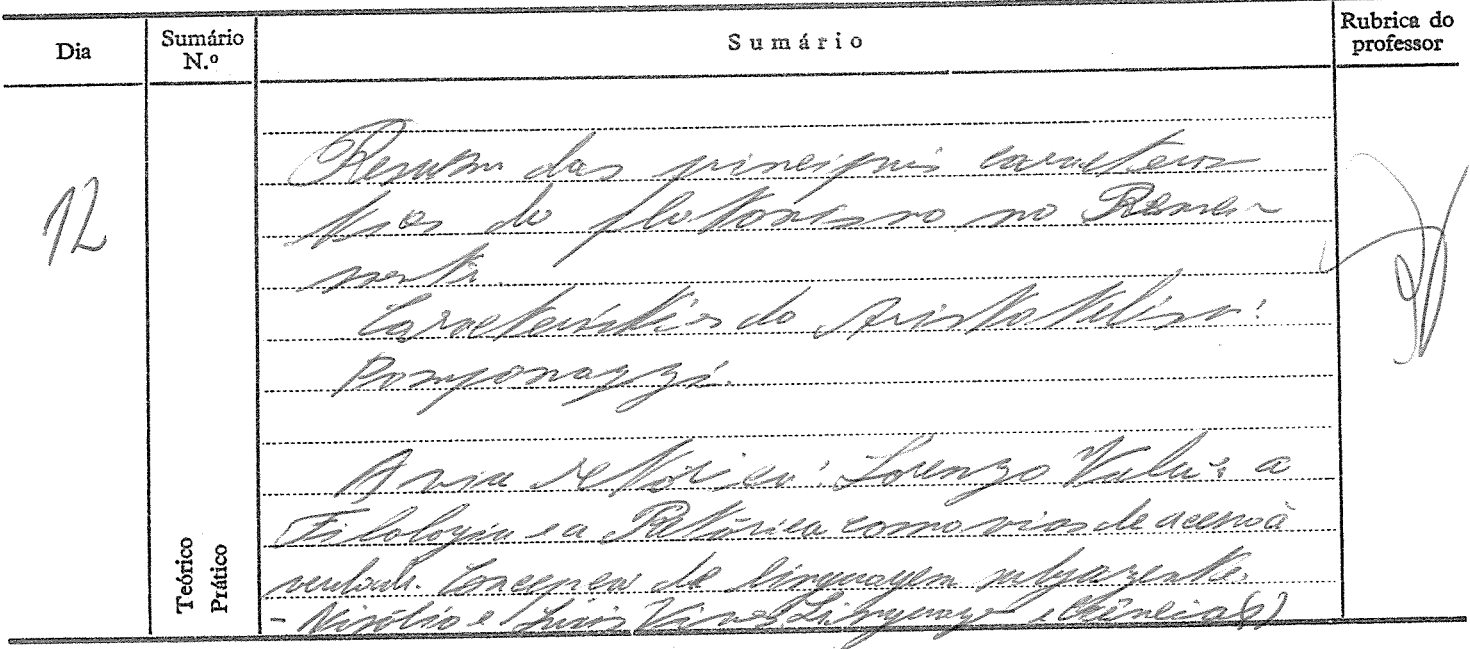 Dia
Sumário N.º
Sumário
Rubrica do professor
12
Teórico
Prático
Resumo das principais caracterís
ticas do platonismo no Renasci
mento.
Características do Aristotelismo:
Pomponazzi.
A via retórica: Lorenzo Valla: a
Filologia e a Retórica como vias de acesso à
verdade. Concepção de linguagem subjazente.
- Nizólio e Luis Vives Linguagem e Ciência(s)